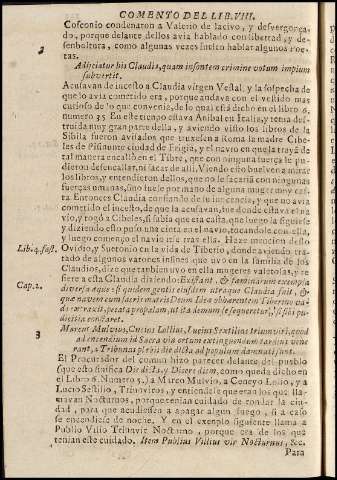 COMENTO DEL LIB. VIII.
Cosconio condenaron a Valerio de lacivo, y desvergonça-
do, porque delante dellos avia hablado con libertad, y de-
senboltura, como algunas vezes suelen hablar algunos Poe-
tas.
2
Adjiciatur his Claudia, quam insontem crimine votum impium
subvertit.
Acusavan de incesto a Claudia virgen Vestal, y la sospecha de
que lo avia cometido era, porque andava con el vestido mas
curioso de lo que convenia, de lo qual está dicho en el libro 6.
numero 35 En este tiempo estava Anibal en Italia, y tenia des-
truida muy gran parte della, y aviendo visto los libros de la
Sibila fueron avisados que truxessen a Roma la madre Cibe-
les de Pisinunte ciudad de Frigia, y el navio en que la traya de
tal manera encalló en el Tibre, que con ninguna fuerça le pu-
dieron desencallar, ni sacar de alli. Viendo esto buelven a mirar
los libros, y entendieron dellos, que no le sacaria con ningunas
fuerças umanas, sino fuesse por mano de alguna muger muy cas-
ta. Entonces Claudia confiando de su inocencia, y que no avia
cometido el incesto, de que la acusavan, fue donde estava el na-
vio, y rogó a Cibeles, si sabia que era casta, que luego la siguiesse
y diziendo esto puso una cinta en el navio, tocandole con ella,
y luego començo el navio a ir tras ella. Haze mencion desto
Lib. 4. fast.
Ovidio, y Suetonio en la vida de Tiberio, donde aviendo tra-
tado de algunos varones insines que uvo en la familia de los
Claudios, dize que tanbien uvo en ella mugeres valerosas, y re-
Cap. 2.
fiere a esta Claudia diziendo: Existant & feminarum exempla
diversa æque: si quidem gentis eiusdem utraque Claudia fuit, &
que navem cum sacris matris Deum Idææ obhærentem Tiberino va-
do extraxit, precata propalam, ut ita demum se sequeretur, si sibi pu-
dicitia constaret.
3
Marcus Mulvius, Cneius Lollius, Lucius Sextilius triumviri, quod
ad incendium id Sacra via ortum extinguendum tardius vene-
rant, a Tribunis plebis die dicta ad populum damnati sunt.
El Procurador del comun hizo parecer delante del pueblo
(que esto sinifica Dir dicti, y Dicere diem, como queda dicho en
el Libro 6. Numero 5.) a Marco Mulvio, a Cneyo Lolio, y a
Lucio Sestilio, Triunviros, y entiendese que eran los que lla-
mavan Nocturnos, porque tenian cuidado de rondar la ciu-
dad, para que acudiessen a apagar algun fuego, si a caso
se encendiesse de noche. Y en el exemplo siguiente llama a
Publio Vilio Triunvir Nocturno, porque era de los que
tenian este cuidado. Item Publius Villius vir Nocturnus, &c.
Para